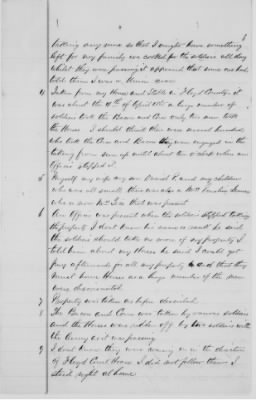 taking any more so that I might have something
left for my family we cooked for the soldiers all day
whilst they were passing it appeared that some one had
told them I was a Union man
4 Taken from my House and Stable in Floyd County it
was about the 4th of April 1865 a large number of
soldiers took the Bacon and Corn only two men took
the Horse I should think there were several hundred
who took the Corn and Bacon they were engaged in the
taking from sun up until about ten o'clock when an
Officer stopped it
5 Myself my wife my son David P. and my children
who was all small there was also a Mrs
who is now Mrs that was present
6 One Officer was present when the soldiers stopped taking
the property I dont know his name or rank he said
the soldiers should take no more of my property I
told him about my Horse he said I would get
pay afterwards for all my property & said that they
must have Horses as a large number of the men
were dismounted
7 Property was taken as before described
8 The Bacon and Corn was taken by various soldiers
and the Horse was ridden off by two soldiers with
the Army as it was passing
9 I dont know they were moving on in the direction
of Floyd Court House I did not follow them I
staid right at home